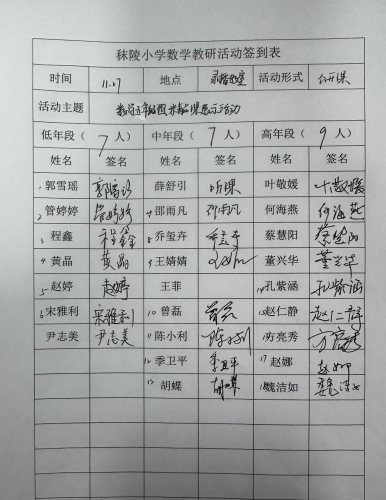 秣陵小学数学教研活动签到表
时间 11.27 地点 录播教室 活动形式 公开课
活动主题
低年段（7人） 中年段（7人） 高年段（9人）
姓名 签名 姓名 签名 姓名 签名
1 郭雪瑶 郭雪瑶 薛舒引 听课 叶敬媛 叶敬媛
2 管婷婷 管婷婷 9 邵雨凡 邵雨凡 何海燕 何海燕
3 程鑫 程鑫 8 乔玺卉 蔡慧阳 蔡慧阳
4 黄晶 黄晶 9 王婧婧 董兴华 董兴华
5 赵婷 赵婷 王菲 14 孔紫涵 孔紫涵
6 宋雅利 宋雅利 10 曾磊 曾磊 赵仁静 赵仁静
尹志美 尹志美 11 陈小利 陈小利 方亮秀 方亮秀
12 季卫平 季卫平 17 赵娜 赵娜
13 胡蝶 胡蝶 魏洁如 魏洁如